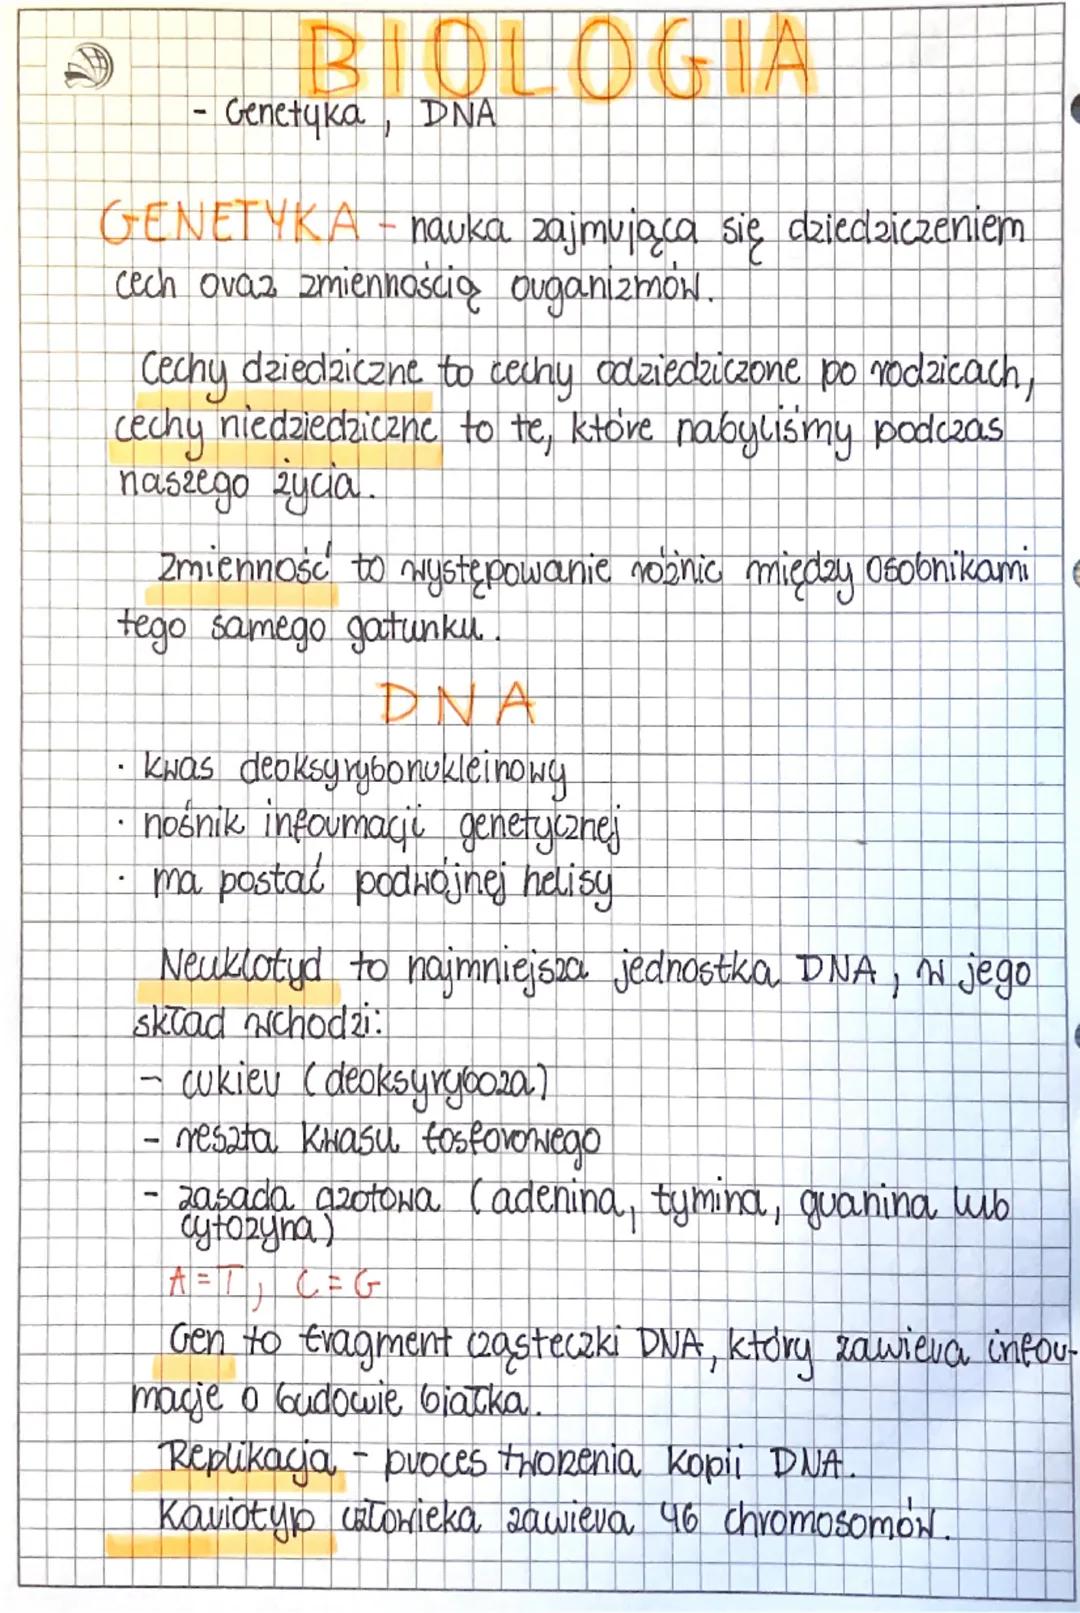 BIOLOGIA
- Genetyka, DNA
GENETYKA - nauka zajmująca się dziedziczeniem
cech oraz zmiennością organizmów.
Cechy dziedziczne to cechy odziedziczone po rodzicach,
cechy niedziedziczne to te, które nabyliśmy podczas
naszego życia.
Zmienność to występowanie różnic między osobnikami
tego samego gatunku.
DNA
· kwas deoksyrybonukleinowy
· nośnik informacji genetycznej
· ma postać podwójnej helisy
Neuklotyd to najmniejsza jednostka DNA, w jego
skład wchodzi:
- cukier (deoksyryboza)
- reszta kwasu fosforowego
- zasada azotowa (adenina, tymina, guanina lub
cytozyna)
A=T, C=G
Gen to fragment cząsteczki DNA, który zawiera infor-
macje o budowie białka.
Replikacja - proces tworzenia kopii DNA.
Kariotyp człowieka zawiera 46 chromosomów.